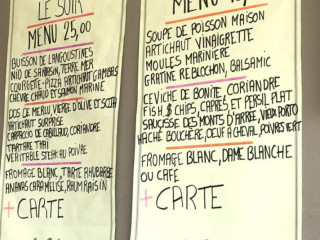 LE SOIR
MENU 25,00
BUISSON DE LANGOUSTINES
NID DE SARRASIN, TERRE MER
COURGETTE-PIZZA ARTICHAUT GAMBAS
CHÈVRE CHAUD ET SAUMON MARINÉ
DOS DE MERLU, VIERGE D'OLIVE ET
ARTICHAUT SURPRISE
CARPACCIO DE CABILLAUD, CORIANDRE
TARTARE THAI
VERITABLE STEAK AU POIVRE
FROMAGE BLANC, TARTE RHUBARBE
ANANAS CARAMELISÉ, RHUM RAISIN
+ CARTE
MENU
SOUPE DE POISSON MAISON
ARTICHAUT VINAIGRETTE
MOULES MARINIERE
GRATINÉ REBLOCHON, BALSAMIC
CEVICHE DE BONITE, CORIANDRE
FISH & CHIPS, CAPRES ET PERSIL PLAT
SAUCISSE DES MONTS D'ARREE, VIEUX PORTO
HACHÉ BOUCHÈRE, OEUF A CHEVAL, POIVRE VERT
FROMAGE BLANC, DAME BLANCHE
OU CAFE
+ CARTE